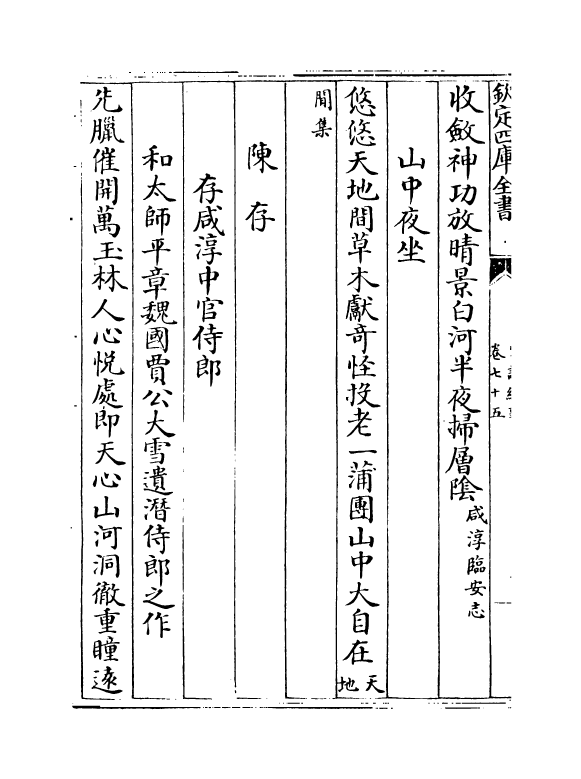 欽定四庫全書
卷七十五
收斂神功放晴景白河半夜掃層陰咸淳臨安志
山中夜坐
悠悠天地間草木獻奇怪投老一蒲團山中大自在天地
間集
陳存
存咸淳中官侍郎
和太師平章魏國賈公大雪遺潛侍郎之作
先臘催開萬玉林人心悅處即天心山河洞徹重瞳遠